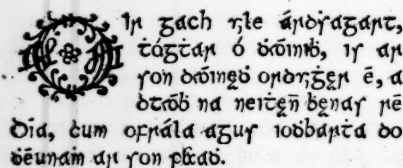 OIr gach uile árdṡagart,
tógṫar ó ḋáoiniḃ, is ar
son ḋáoineḋ orduiġṫear é, a
dtáoḃ na neiṫeann ḃeanas ré
Día, ċum ofrála agus ioḋbarṫa do
ḋéunaṁ ar son ṗeacaḋ.